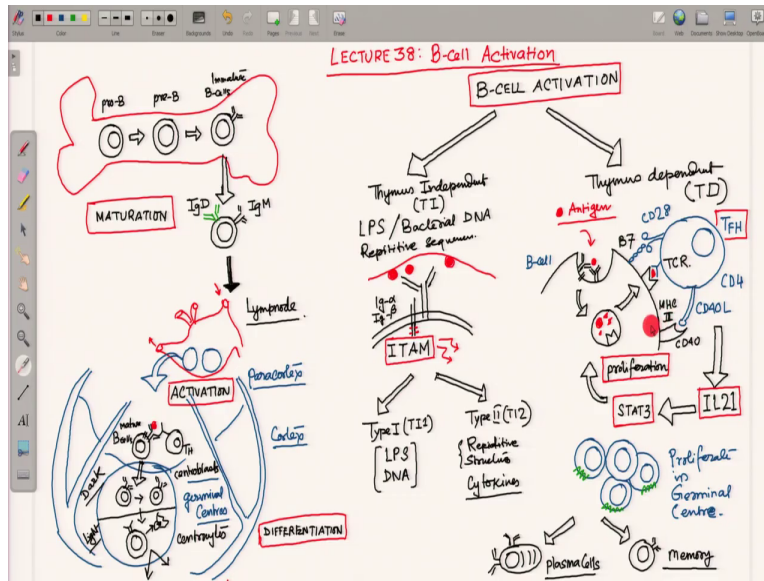 Stylus
Color
Line
Eraser
Backgrounds
Undo
Redo
Pages
Previous
Next
Erase
Board
Web
Documents
Show Desktop
OpenBoard
LECTURE 38: B-cell Activation
B-CELL ACTIVATION
pro-B
pre-B
Immature
B-cells
MATURATION
IgD
IgM
Lymphnode
ACTIVATION
Paracortex
Cortex
mature
B cells
TH
Dark
centroblasts
germinal
Centres
light
centrocytes
DIFFERENTIATION
Thymus Independent
(TI)
LPS / Bacterial DNA
Repititive sequences
Ig-α
Ig-β
ITAM
Type I (TI1)
LPS
DNA
Type II (TI2)
Repeditive
Structures
Cytokines
Thymus dependent
(TD)
Antigen
CD28
B7
TFH
B-cell
TCR
CD4
MHC
II
CD40L
CD40
proliferation
STAT3
IL21
Proliferate
in
Germinal
Centre.
plasma cells
memory